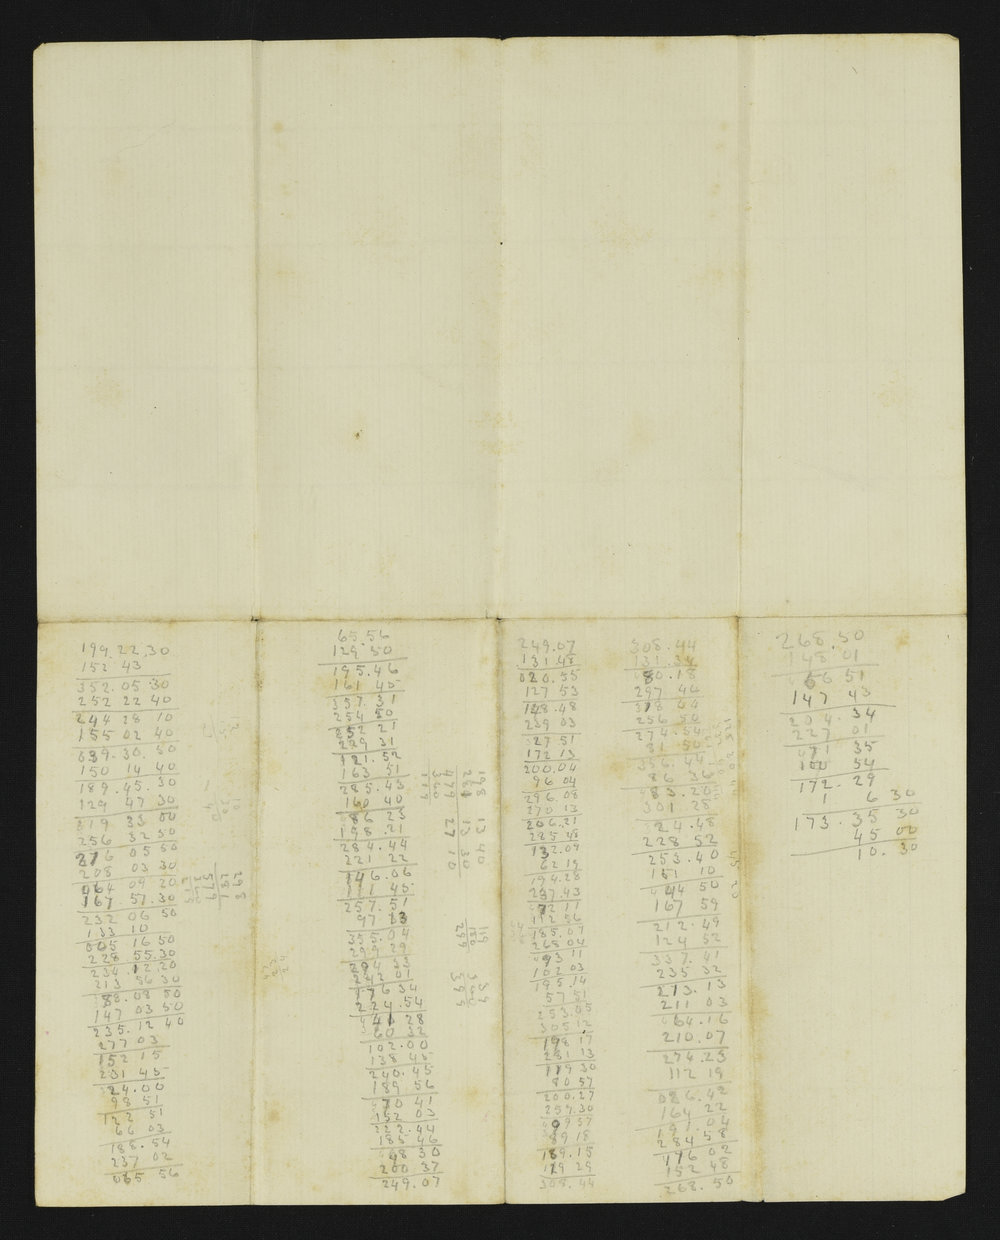 199.22.30
152 43
352.05.30
252 22 40
244 28 10
155 02 40
039.30.50
150 14 40
189.45.30
129 47 30
319 33 00
256 32 50
216 05 50
208 03 30
064 09 20
167.57.30
232 06 50
133 10
005 16 50
228 55.30
234.12.20
213 56 30
88.08 50
147 03 50
235.12 40
277 03
152 15
231 45
24.00
98 51
122 51
66 03
188.54
237 02
065 56
65.56
129.50
195.46
161 45
357.31
254 50
252 21
229 31
121.52
163 51
285.43
160 40
86 23
198.21
284.44
221 22
146.06
111 45
257.51
97 13
355.04
299 29
294 33
242 01
176 34
224.54
41 28
60 32
102.00
138 45
240.45
189 56
70 41
152 03
222.44
185 46
48 30
200 37
249.07
198 13 40
281 13 30
479 27 10
360
119
298
281
579
360
219
119
180
299
39
360
399
249.07
131 48
020.55
127 53
148.48
239 03
27 51
172 13
200.04
96 04
296.08
270 13
206.21
285 48
132.09
62 19
194.28
237.43
72 11
112 56
185.07
268 04
93 11
102 03
195.14
57 51
253.05
305 12
198 17
281 13
119 30
80 57
200.27
259.30
99 57
89 18
189.15
119 29
308.44
308.44
131.34
80.18
297 46
318 04
256 50
274.54
81 50
356.44
86 36
83.20
301 28
24.48
228 52
253.40
151 10
44 50
167 59
212.49
124 52
337.41
235 32
213.13
211 03
64.16
210.07
274.23
112 19
026.42
164 22
191.04
284 58
116 02
152 48
268.50
268.50
148 01
66 51
147 43
204.34
227 01
71 35
100 54
172.29
1 6 30
173.35 30
45 00
10.30